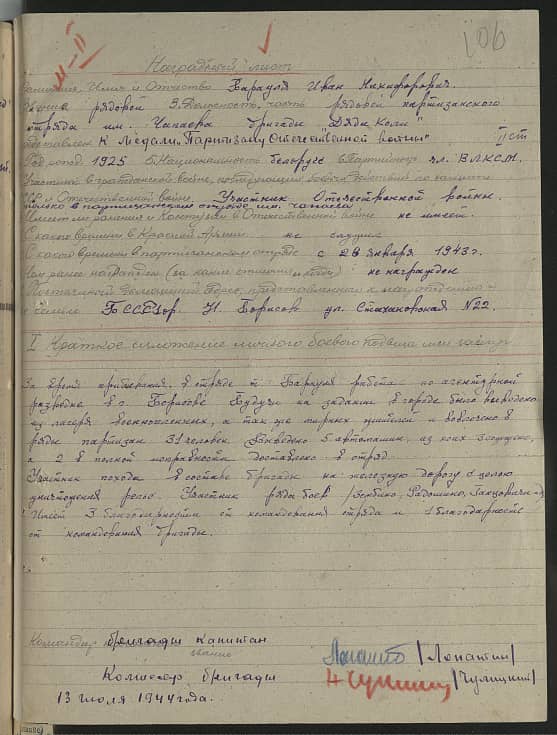 106
II-II
Наградный лист
Фамилия, Имя и Отчество Барауля Иван Никифорович.
Звание рядовой 3. Должность, часть рядовой партизанского
отряда им. Чапаева бригады "Дяди Коли"
Представлен к Медали "Партизану Отечественной войны" II ст
Год рожд. 1925 5. Национальность белорус 6. Партийность чл. ВЛКСМ.
Участие в гражданской войне, последующих боевых действиях по защите
и Отечественной войне. Участник Отечественной войны.
только в партизанском отряде им. Чапаева
Имеет ли ранения и контузии в Отечественной войне не имеет.
С какого времени в Красной Армии не служил
С какого времени в партизанском отряде с 28 января 1943 г.
Чем ранее награжден (за какие отличия и когда) не награжден
Постоянный домашний адрес, представленного к награждению
и семьи БССР, гор. Н. Борисов ул. Стахановская №22.
I Краткое изложение личного боевого подвига или заслуг
За время пребывания в отряде т. Барауля работал по агентурной
разведке в г. Борисове. Будучи на задании в городе было выведено
из лагеря военнопленных, а так же мирных жителей и вовлечено в
ряды партизан 31 человек. 5 автомашин, из коих 3
а 2 в полной исправности доставлено в отряд.
Участник похода в составе бригады на железную дорогу с целью
уничтожения рельс. Участник ряда боев
Имеет 3 благодарности от командования отряда и 1 благодарность
от командования бригады.
Командир бригады капитан
звание
/Лопатин/
Комиссар бригады
/Чулицкий/
13 июля 1944 года.